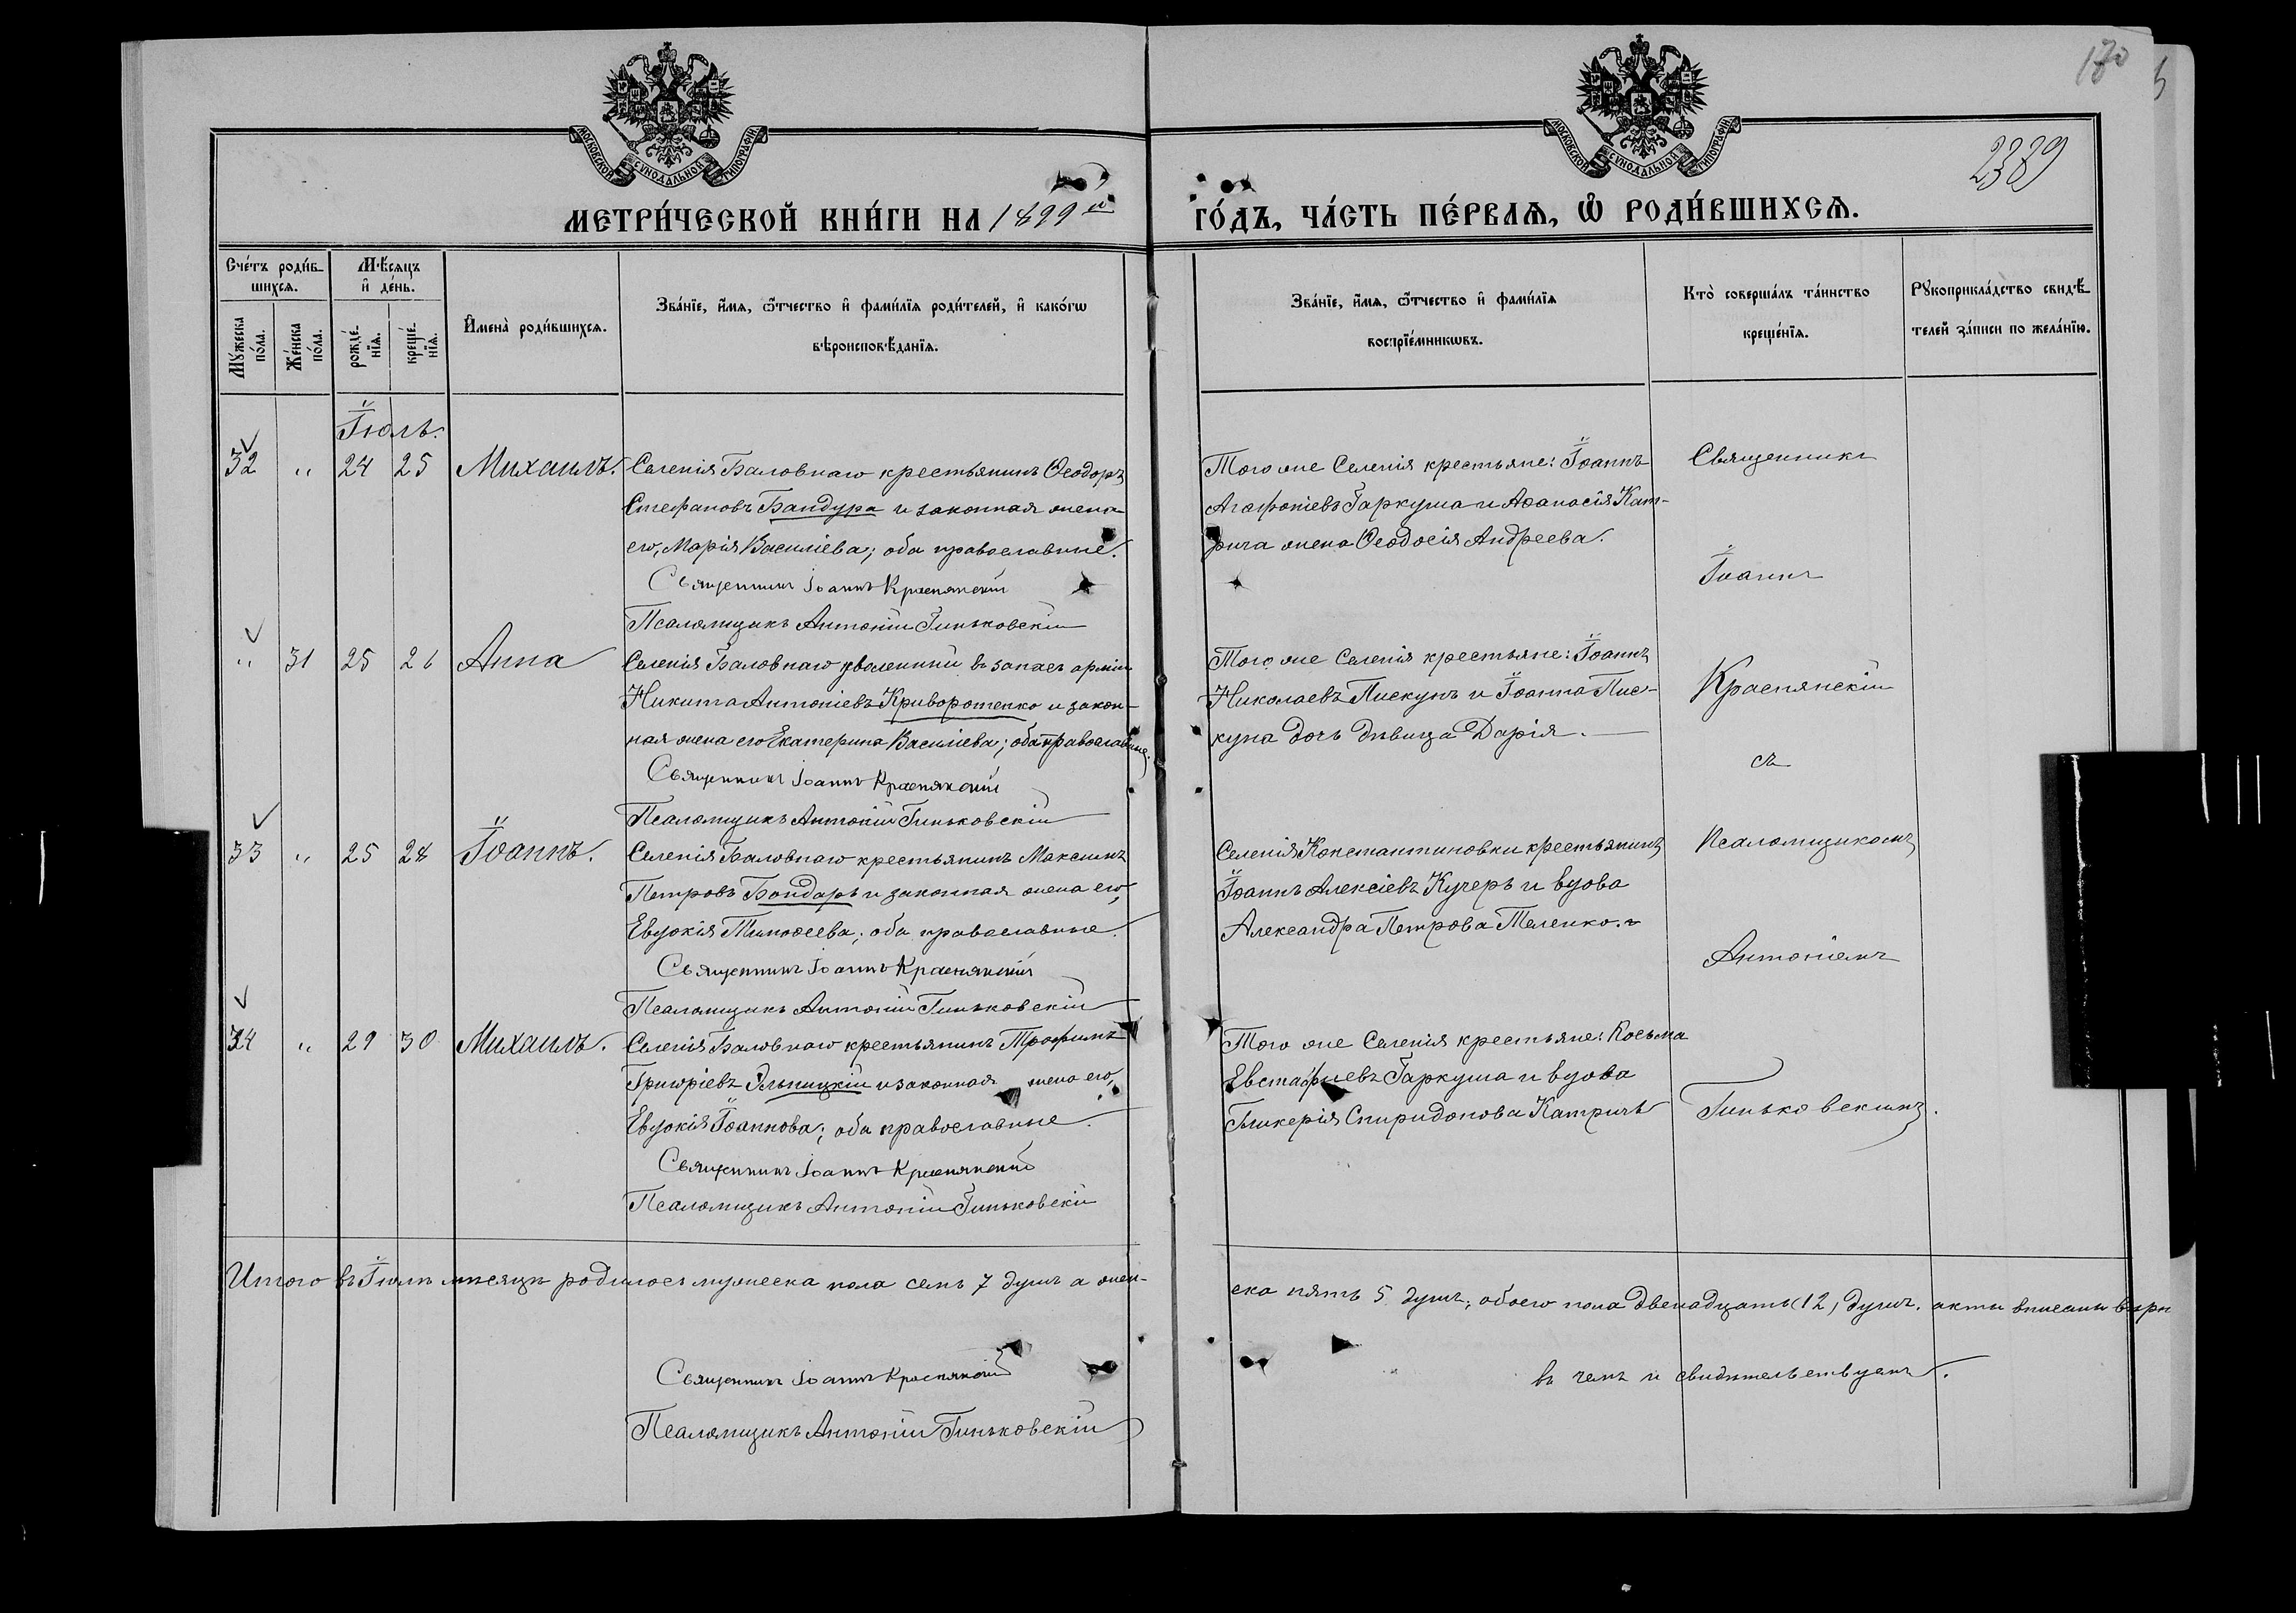 170
2389
МОСКОВСКОЙ СѴНОДАЛЬНОЙ ТИПОГРАФІИ
МОСКОВСКОЙ СѴНОДАЛЬНОЙ ТИПОГРАФІИ
МЕТРИ́ЧЕСКОЙ КНИ́ГИ НА 1899й ГО́ДЪ, ЧА́СТЬ ПЕ́РВАѦ, Ѡ҆ РОДИ́ВШИХСѦ.
Сче́тъ роди́вшихсѧ.
Мꙋ́жеска по́ла.
Же́нска по́ла.
Мѣ́сѧцъ и҆ де́нь.
рожде́нїѧ.
креще́нїѧ.
И҆мена̀ роди́вшихсѧ.
Зва́нїе, и҆́мѧ, ѻ҆́тчество и҆ фами́лїѧ роди́телей, и҆ како́гѡ
вѣроисповѣ́данїѧ.
Зва́нїе, и҆́мѧ, ѻ҆́тчество и҆ фами́лїѧ
воспрїе́мникѡвъ.
Кто̀ соверша́лъ та́инство
креще́нїѧ.
Рꙋкоприкла́дство свидѣ́-
телей за́писи по жела́нїю.
Іюль.
32 " 24 25 Михаилъ. Селенія Баловнаго крестьянинъ Ѳеодоръ
Стефановъ Бандура и законная жена
его, Марія Василіева; оба православные.
Священникъ Іоаннъ Краснянскій
Псаломщикъ Антоній Гиньковскій
Того же Селенія крестьяне: Іоаннъ
Агафоніевъ Гаркуша и Аѳанасія Кат-
рича жена Ѳеодосія Андреева.
" 31 25 26 Анна Селенія Баловнаго уволенный въ запасъ арміи
Никита Антоніевъ Криворотенко и закон-
ная жена его Екатерина Василіева; оба православные.
Священникъ Іоаннъ Краснянскій
Псаломщикъ Антоній Гиньковскій
Того же Селенія крестьяне: Іоаннъ
Николаевъ Пискунъ и Іоанна Пис-
куна дочь дѣвица Дарія.
33 " 25 28 Іоаннъ. Селенія Баловнаго крестьянинъ Максимъ
Петровъ Бондарь и законная жена его,
Евдокія Тимоѳеева; оба православные.
Священникъ Іоаннъ Краснянскій
Псаломщикъ Антоній Гиньковскій
Селенія Константиновки крестьянинъ
Іоаннъ Алексіевъ Кучеръ и вдова
Александра Петрова Теленко.
34 " 29 30 Михаилъ. Селенія Баловнаго крестьянинъ Трофимъ
Григоріевъ Ельницкій и законная жена его,
Евдокія Іоаннова; оба православные.
Священникъ Іоаннъ Краснянскій
Псаломщикъ Антоній Гиньковскій
Того же Селенія крестьяне: Косьма
Евстафіевъ Гаркуша и вдова
Гликерія Спиридонова Катричъ
Священникъ
Іоаннъ
Краснянскій
съ
Псаломщикомъ
Антоніемъ
Гиньковскимъ.
Итого въ Іюлѣ мѣсяцѣ родилось мужеска пола семь 7 душъ а жен-
ска пять 5 душъ; обоего пола двенадцать (12) душъ. акты вписаны вѣрн
въ чемъ и свидѣтельствуемъ.
Священникъ Іоаннъ Краснянскій
Псаломщикъ Антоній Гиньковскій